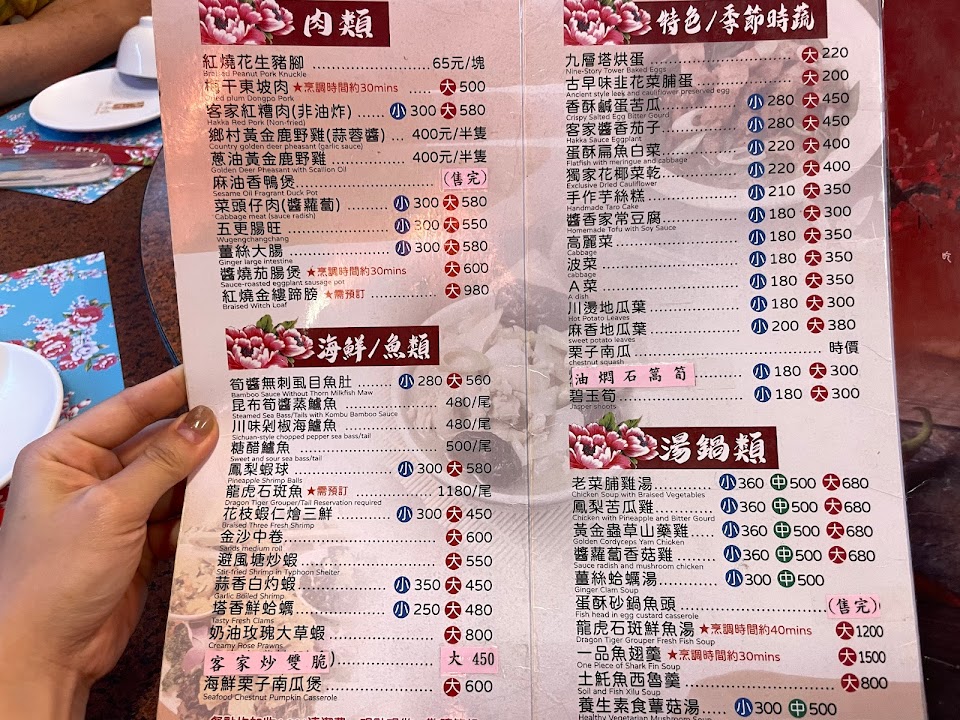 肉類
紅燒花生豬腳 65元/塊
Braised Peanut Pork Knuckle
梅干東坡肉 ★烹調時間約30mins 大 500
Dried plum Dongpo Pork
客家紅糟肉(非油炸) 小 300 大 580
Hakka Red Pork (Non-fried)
鄉村黃金鹿野雞(蒜蓉醬) 400元/半隻
Country golden deer pheasant (garlic sauce)
蔥油黃金鹿野雞 400元/半隻
Golden Deer Pheasant with Scallion Oil
麻油香鴨煲 (售完)
Sesame Oil Fragrant Duck Pot
菜頭仔肉(醬蘿蔔) 小 300 大 580
Cabbage meat (sauce radish)
五更腸旺 小 300 大 550
Wugengchangchang
薑絲大腸 小 300 大 580
Ginger large intestine
醬燒茄腸煲 ★烹調時間約30mins 大 600
Sauce-roasted eggplant sausage pot
紅燒金縷蹄膀 ★需預訂 大 980
Braised Witch Loaf
海鮮/魚類
筍醬無刺虱目魚肚 小 280 大 560
Bamboo Sauce Without Thorn Milkfish Maw
昆布筍醬蒸鱸魚 480/尾
Steamed Sea Bass/Tails with Kombu Bamboo Sauce
川味剁椒海鱸魚 480/尾
Sichuan-style chopped pepper sea bass/tail
糖醋鱸魚 500/尾
Sweet and sour sea bass/tail
鳳梨蝦球 小 300 大 580
Pineapple Shrimp Balls
龍虎石斑魚 ★需預訂 1180/尾
Dragon Tiger Grouper/Tail Reservation required
花枝蝦仁燴三鮮 小 300 大 450
Braised Three Fresh Shrimp
金沙中卷 大 600
Sands medium roll
避風塘炒蝦 大 550
Stir-fried Shrimp in Typhoon Shelter
蒜香白灼蝦 小 350 大 450
Garlic Boiled Shrimp
塔香鮮蛤蠣 小 250 大 480
Tasty Fresh Clams
奶油玫瑰大草蝦 大 800
Creamy Rose Prawns
客家炒雙脆 大 450
海鮮栗子南瓜煲 大 600
Seafood Chestnut Pumpkin Casserole
特色/季節時蔬
九層塔烘蛋 大 220
Nine-Story Tower Baked Eggs
古早味韭花菜脯蛋 大 200
Ancient style leek and cauliflower preserved egg
香酥鹹蛋苦瓜 小 280 大 450
Crispy Salted Egg Bitter Gourd
客家醬香茄子 小 280 大 450
Hakka Sauce Eggplant
蛋酥扁魚白菜 小 220 大 400
Flatfish with meringue and cabbage
獨家花椰菜乾 小 220 大 400
Exclusive Dried Cauliflower
手作芋絲糕 小 210 大 350
Handmade Taro Cake
醬香家常豆腐 小 180 大 300
Homemade Tofu with Soy Sauce
高麗菜 小 180 大 350
cabbage
波菜 小 180 大 350
cabbage
A菜 小 180 大 350
A dish
川燙地瓜葉 小 180 大 300
Hot Potato Leaves
麻香地瓜葉 小 200 大 380
sweet potato leaves
栗子南瓜 時價
chestnut squash
油燜石篙筍 小 180 大 300
碧玉筍 小 180 大 300
Jasper shoots
湯鍋類
老菜脯雞湯 小 360 中 500 大 680
Chicken Soup with Braised Vegetables
鳳梨苦瓜雞 小 360 中 500 大 680
Chicken with Pineapple and Bitter Gourd
黃金蟲草山藥雞 小 360 中 500 大 680
Golden Cordyceps Yam Chicken
醬蘿蔔香菇雞 小 360 中 500 大 680
Sauce radish and mushroom chicken
薑絲蛤蠣湯 小 300 中 500
Ginger Clam Soup
蛋酥砂鍋魚頭 (售完)
Fish head in egg custard casserole
龍虎石斑鮮魚湯 ★烹調時間約40mins 大 1200
Dragon Tiger Grouper Fresh Fish Soup
一品魚翅羹 ★烹調時間約30mins 大 1500
One Piece of Shark Fin Soup
土魠魚西魯羹 大 800
Soil and Fish Xilu Soup
養生素食蕈菇湯 小 300 中 500
Healthy Vegetarian Mushroom Soup